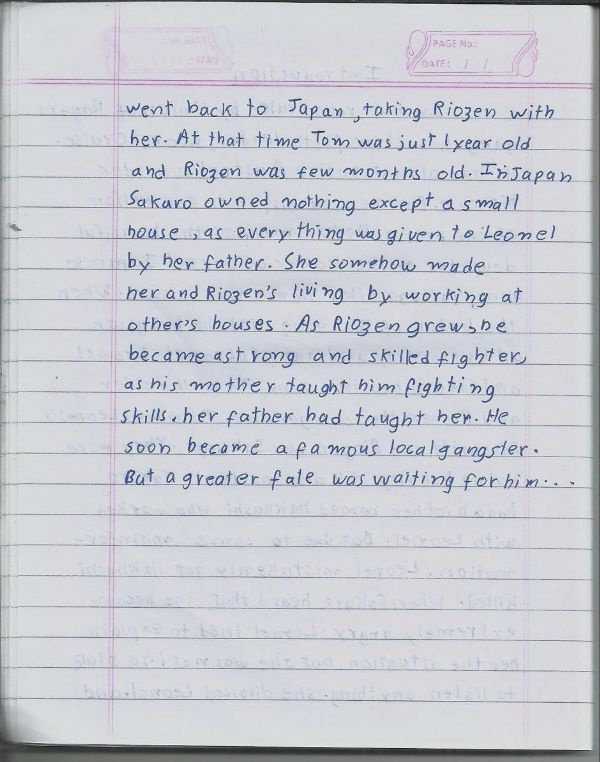 PAGE No.:
DATE: / /
went back to Japan, taking Riozen with
her. At that time Tom was just 1 year old
and Riozen was few months old. In Japan
Sakuro owned nothing except a small
house, as every thing was given to Leonel
by her father. She somehow made
her and Riozen's living by working at
other's houses. As Riozen grew, he
became a strong and skilled fighter,
as his mother taught him fighting
skills, her father had taught her. He
soon became a famous local gangster.
But a greater fate was waiting for him...